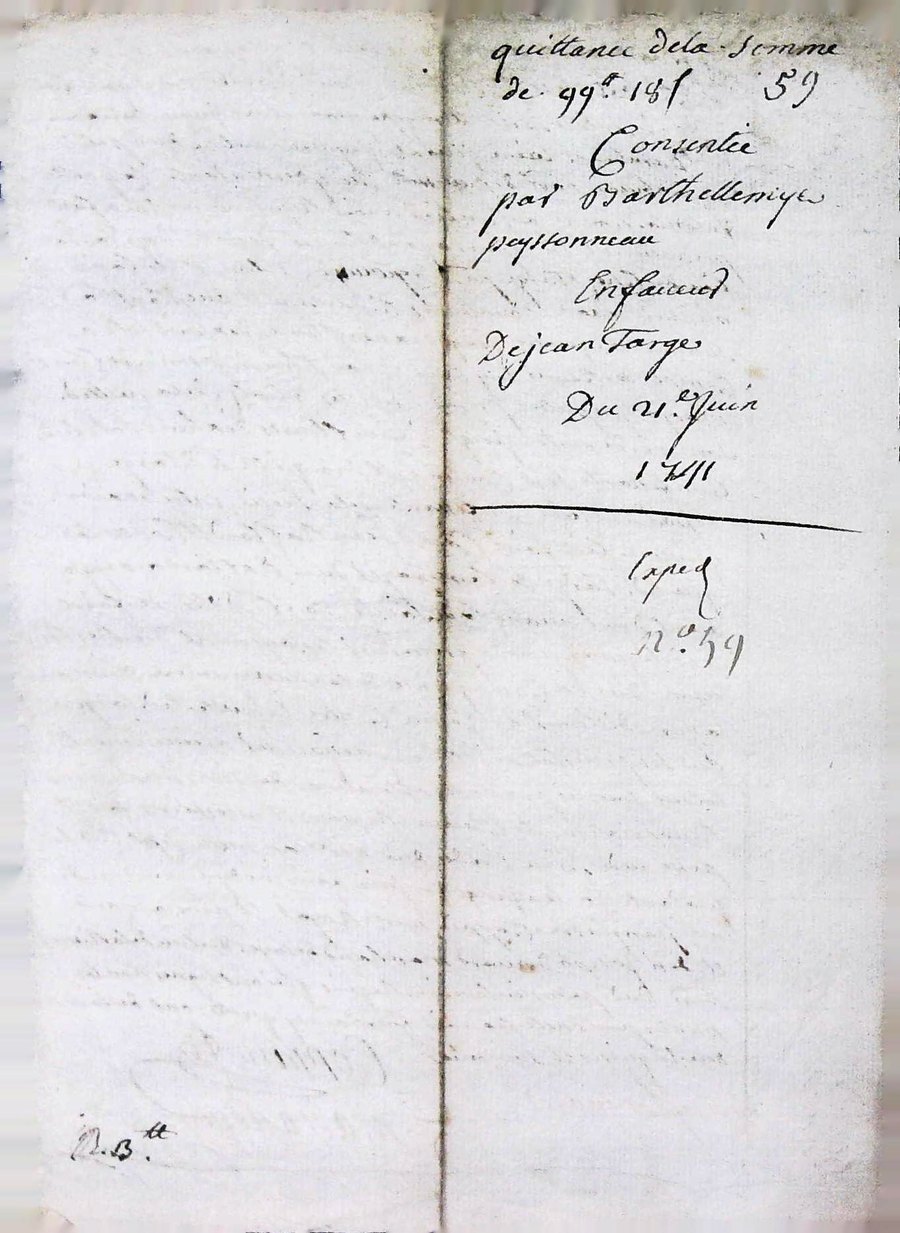 quittance dela Somme
de 99ᵗᵗ 18ſ 59
Consentie
par Barthellemye
peyssonneau
Enfaveur
De jean Farge
Du 21.ᵉ Juin
1741
Exped
n.º 59
B.ᵗᵗ